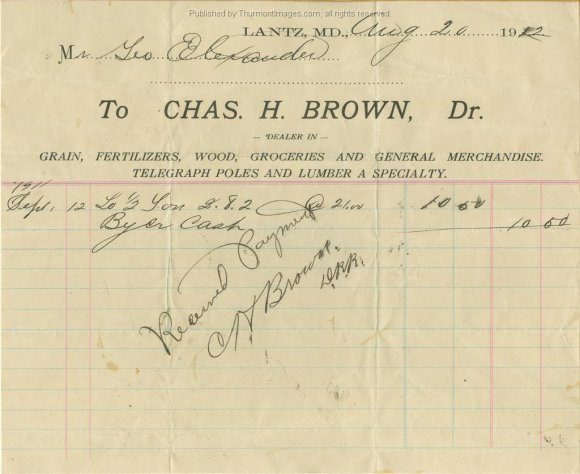 Published by ThurmontImages.com, all rights reserved
LANTZ, MD., Aug 20 1912
Mr Geo Elexander
To CHAS. H. BROWN, Dr.
— DEALER IN —
GRAIN, FERTILIZERS, WOOD, GROCERIES AND GENERAL MERCHANDISE.
TELEGRAPH POLES AND LUMBER A SPECIALTY.
1911
Sept. 12 To ½ Ton 2.8.2 @ 21.00 10 50
By Cash 10 50
Received Payment
C H Brown.